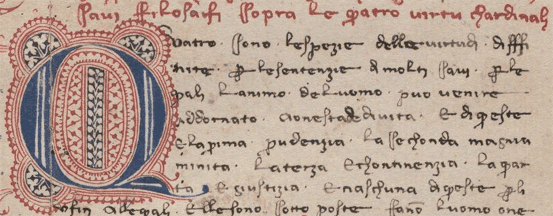 saui filosafi sopra le quatro uirtu chardinalj
Quatro sono lespezie delle uirtudi diffi
nite p le sentenzie di molti saui p le
quali lanimo deluomo puo uenire
addornato aonesta de diuita E di queste
E la pima pudenzia la sechonda magna
minita la terza E chontinenzia la quar
ta E giustizia E naschuna di queste p li
alle quali Elle sono sotto poste fano luomo one